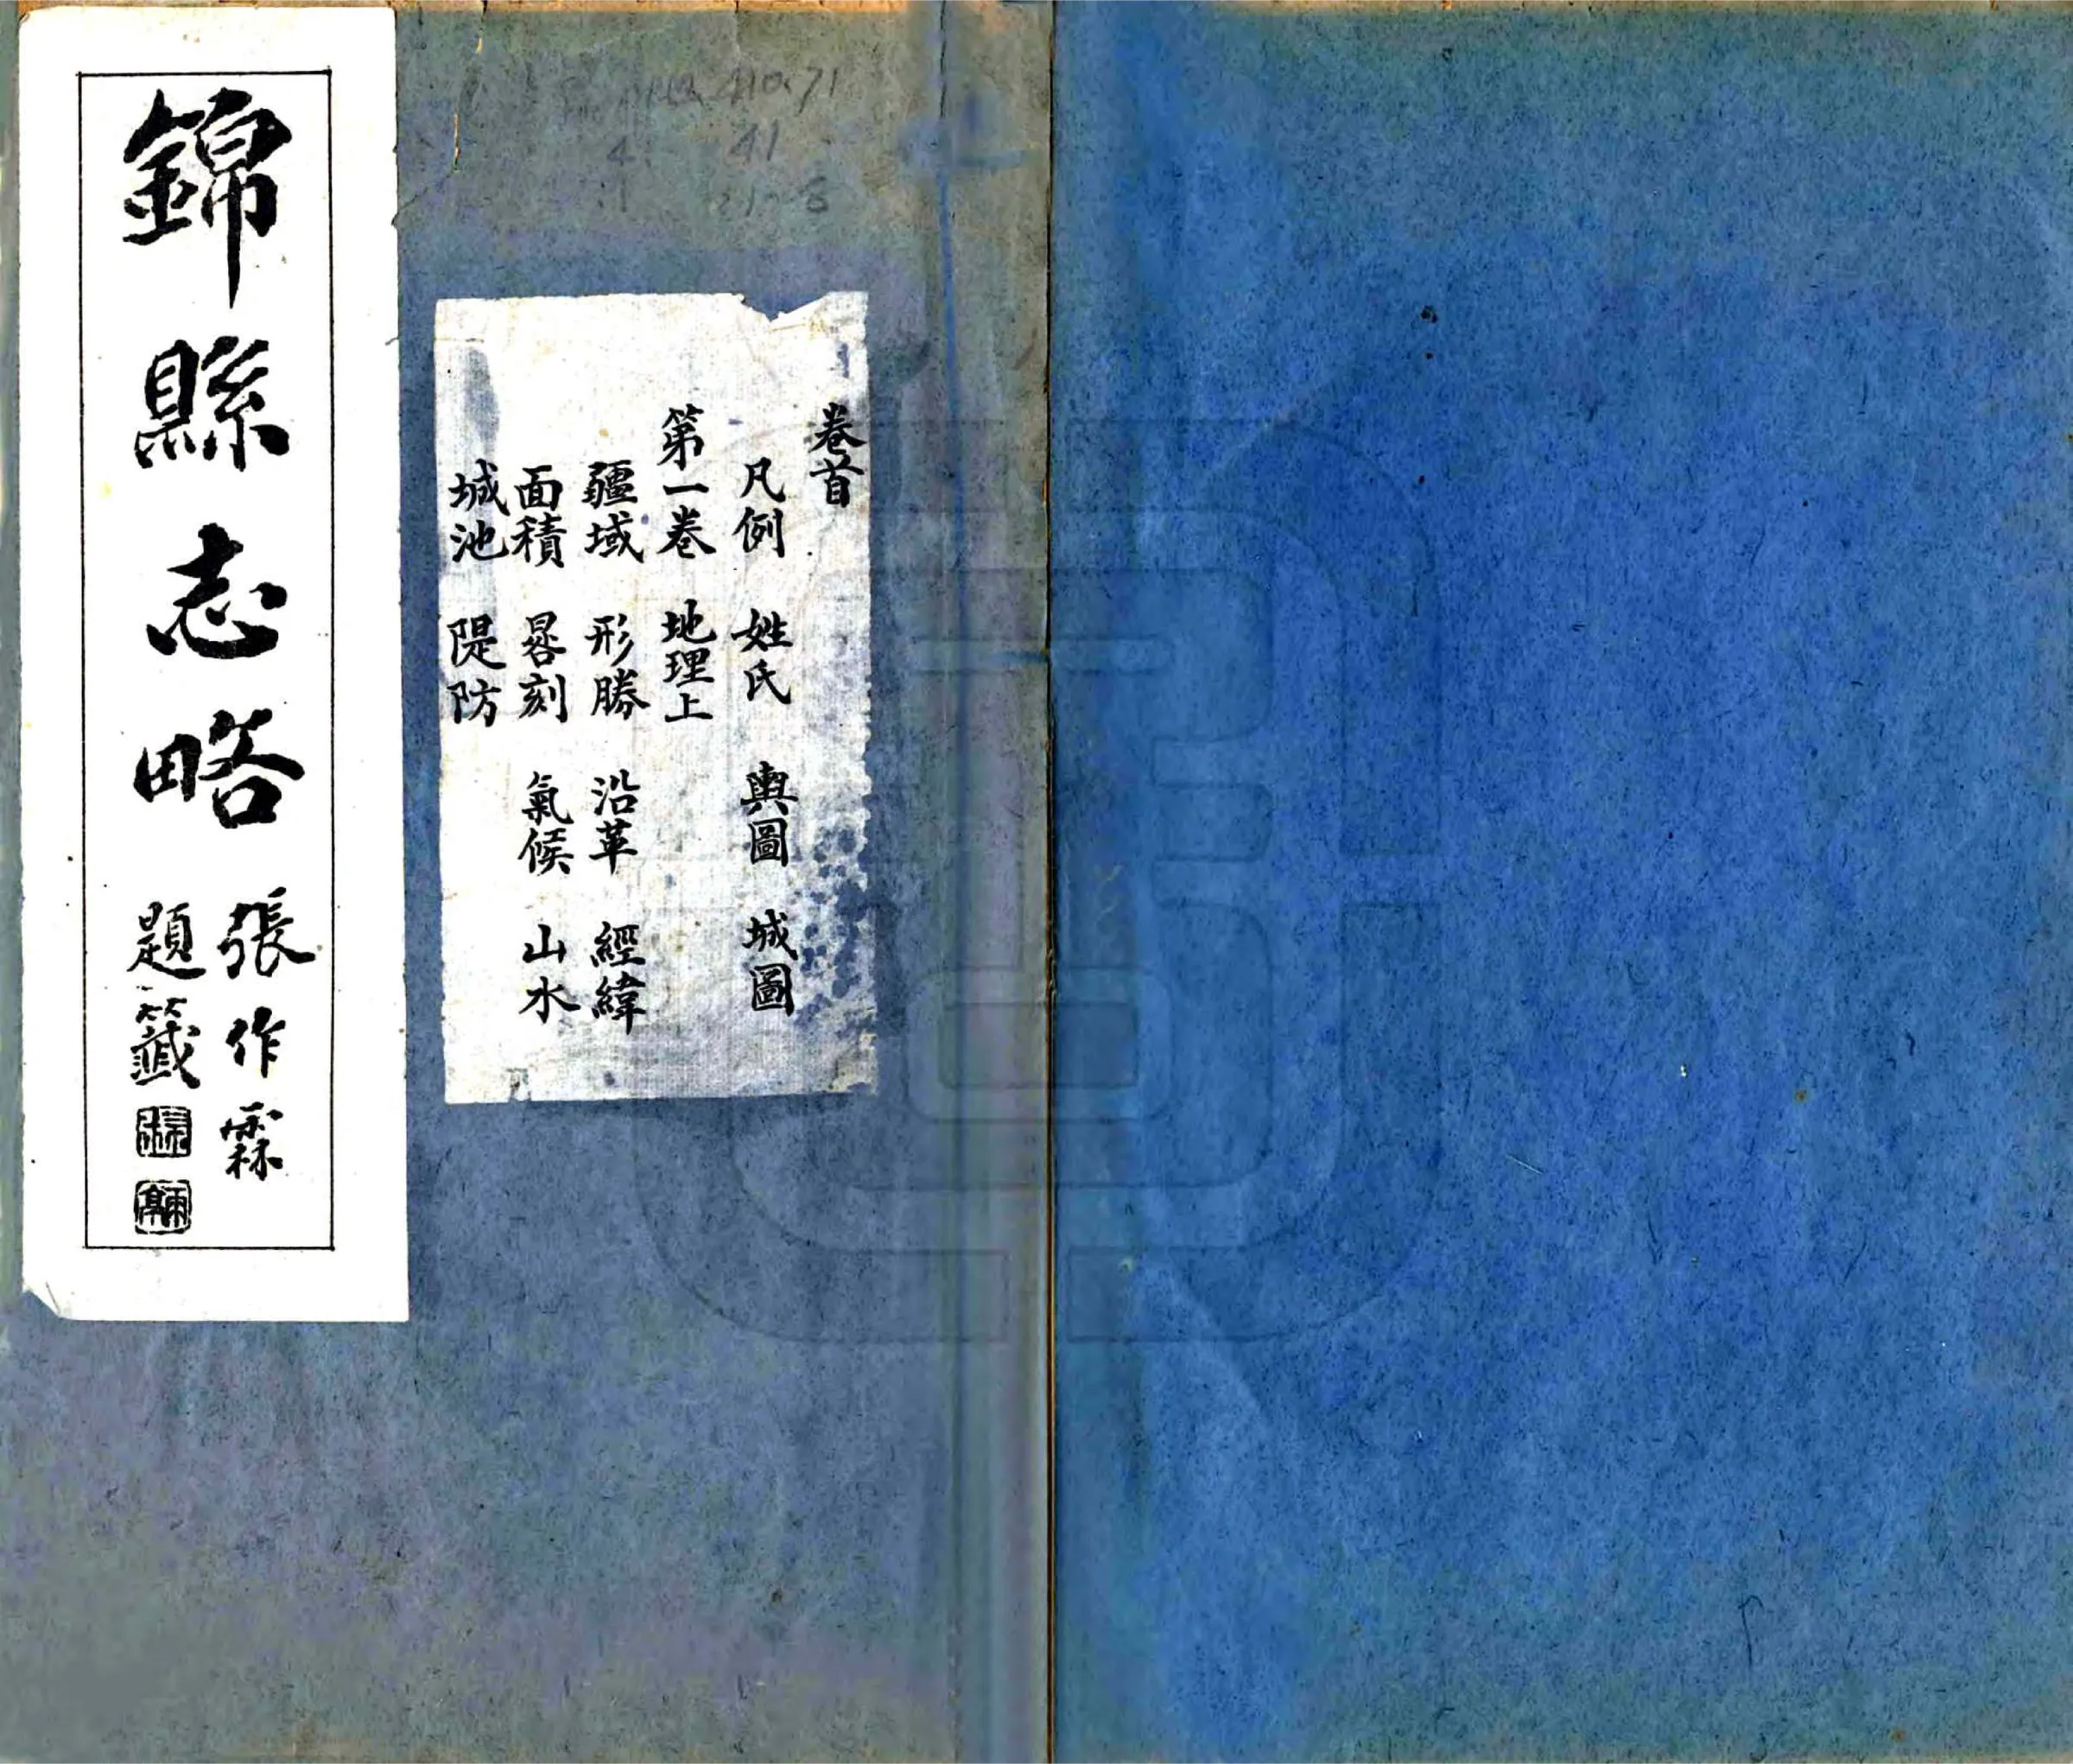 錦縣志略
張作霖
題籤
卷首
凡例 姓氏 輿圖 城圖
第一卷 地理上
疆域 形勝 沿革 經緯
面積 晷刻 氣候 山水
城池 隄防
410.71
41
4